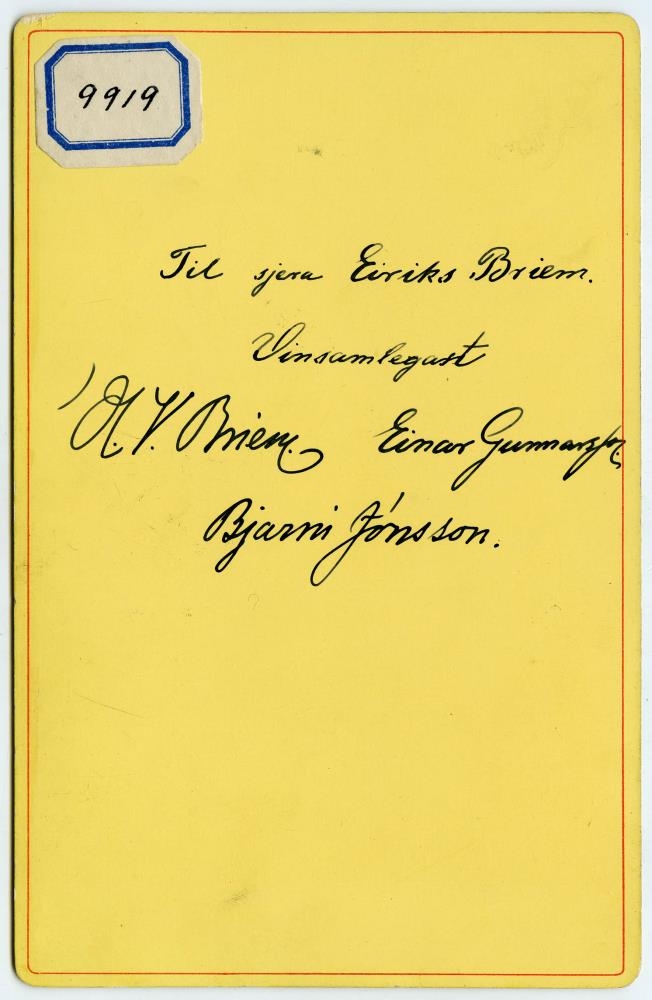 9919
Til sjera Eiriks Briem.
Vinsamlegast
V. Briem. Einar Gunnarsson
Bjarni Jónsson.